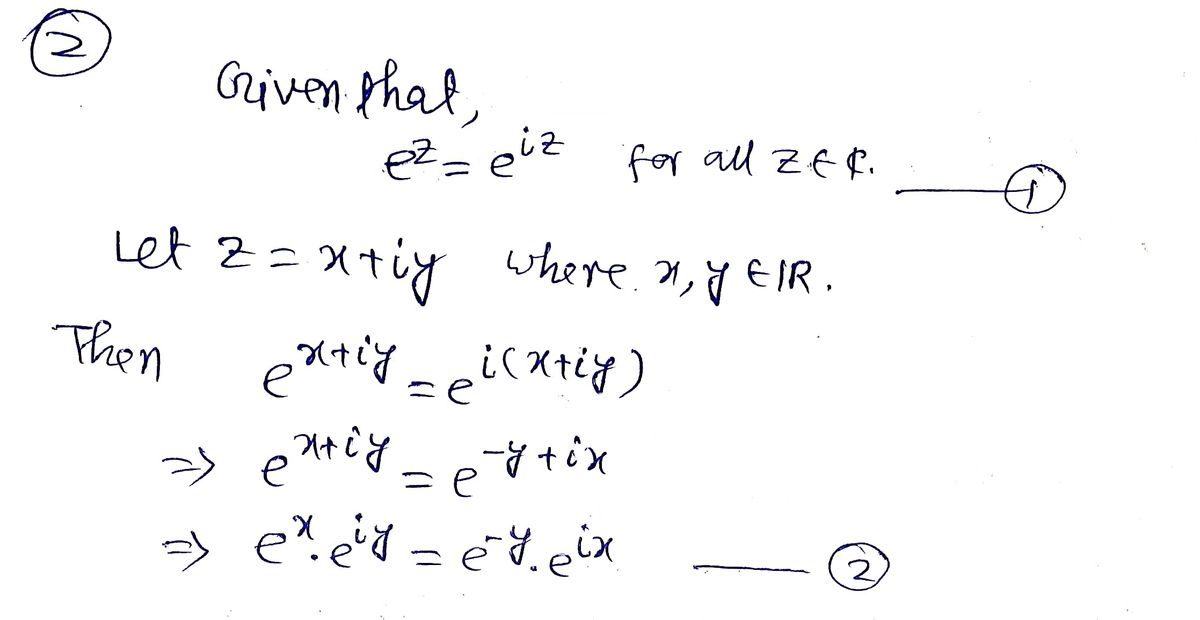 ②
Given that,
e^z = e^{iz} for all z ∈ ℂ. —— ①
Let z = x+iy where x, y ∈ ℝ.
Then e^{x+iy} = e^{i(x+iy)}
⇒ e^{x+iy} = e^{-y+ix}
⇒ e^x · e^{iy} = e^{-y} · e^{ix} —— ②